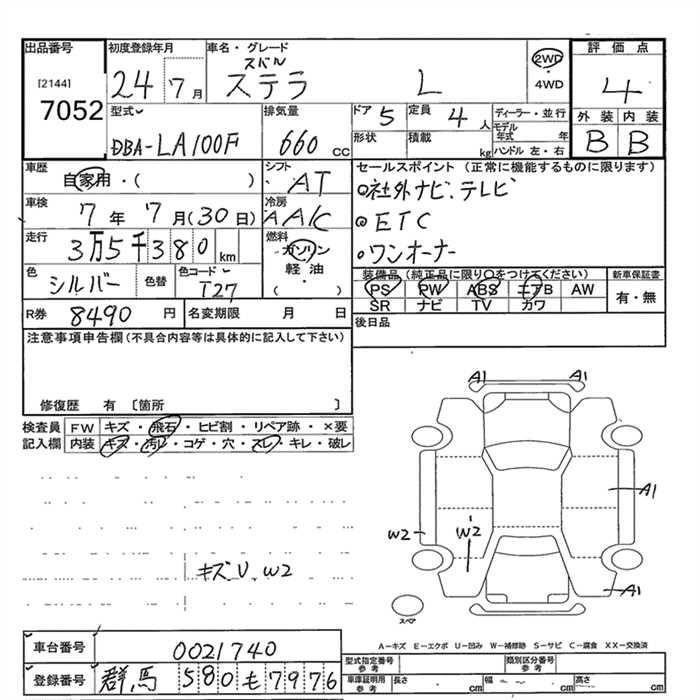 出品番号
[2144]
7052
初度登録年月
24 7月
車名・グレード
スバル
ステラ L
2WD
・4WD
評価点
4
外装 内装
B B
型式
DBA-LA100F
排気量
660 CC
ドア 5
定員 4人
形状
積載 kg
ディーラー・並行
モデル年式 年
ハンドル 左・右
車歴
自家用・( )
シフト
AT
車検
7年 7月(30日)
冷房
AAC
走行
3万5千380km
燃料
ガソリン
軽油
( ・ )
色
シルバー
色替
色コード
T27
R券 8490円
名変期限 月 日
セールスポイント(正常に機能するものに限ります)
社外ナビ、テレビ
ETC
ワンオーナー
装備品(純正品に限り○をつけてください)
PS PW ABS エアB AW
SR ナビ TV カワ
新車保証書
有・無
後日品
注意事項申告欄(不具合内容等は具体的に記入して下さい)
修復歴 有〔箇所 〕
検査員 FW キズ・飛石・ヒビ割・リペア跡・×要
記入欄 内装 キズ・汚レ・コゲ・穴・スレ・キレ・破レ
キズU、W2
A1 A1
A1
W2 W2
A1
スペア
A-キズ E-エクボ U-凹み W-補修跡 S-サビ C-腐食 XX-交換済
車台番号 0021740
登録番号 群馬 580 も 7976
型式指定番号
参考
類別区分番号
参考
車庫証明用
参考
長さ cm 幅 cm 高さ cm